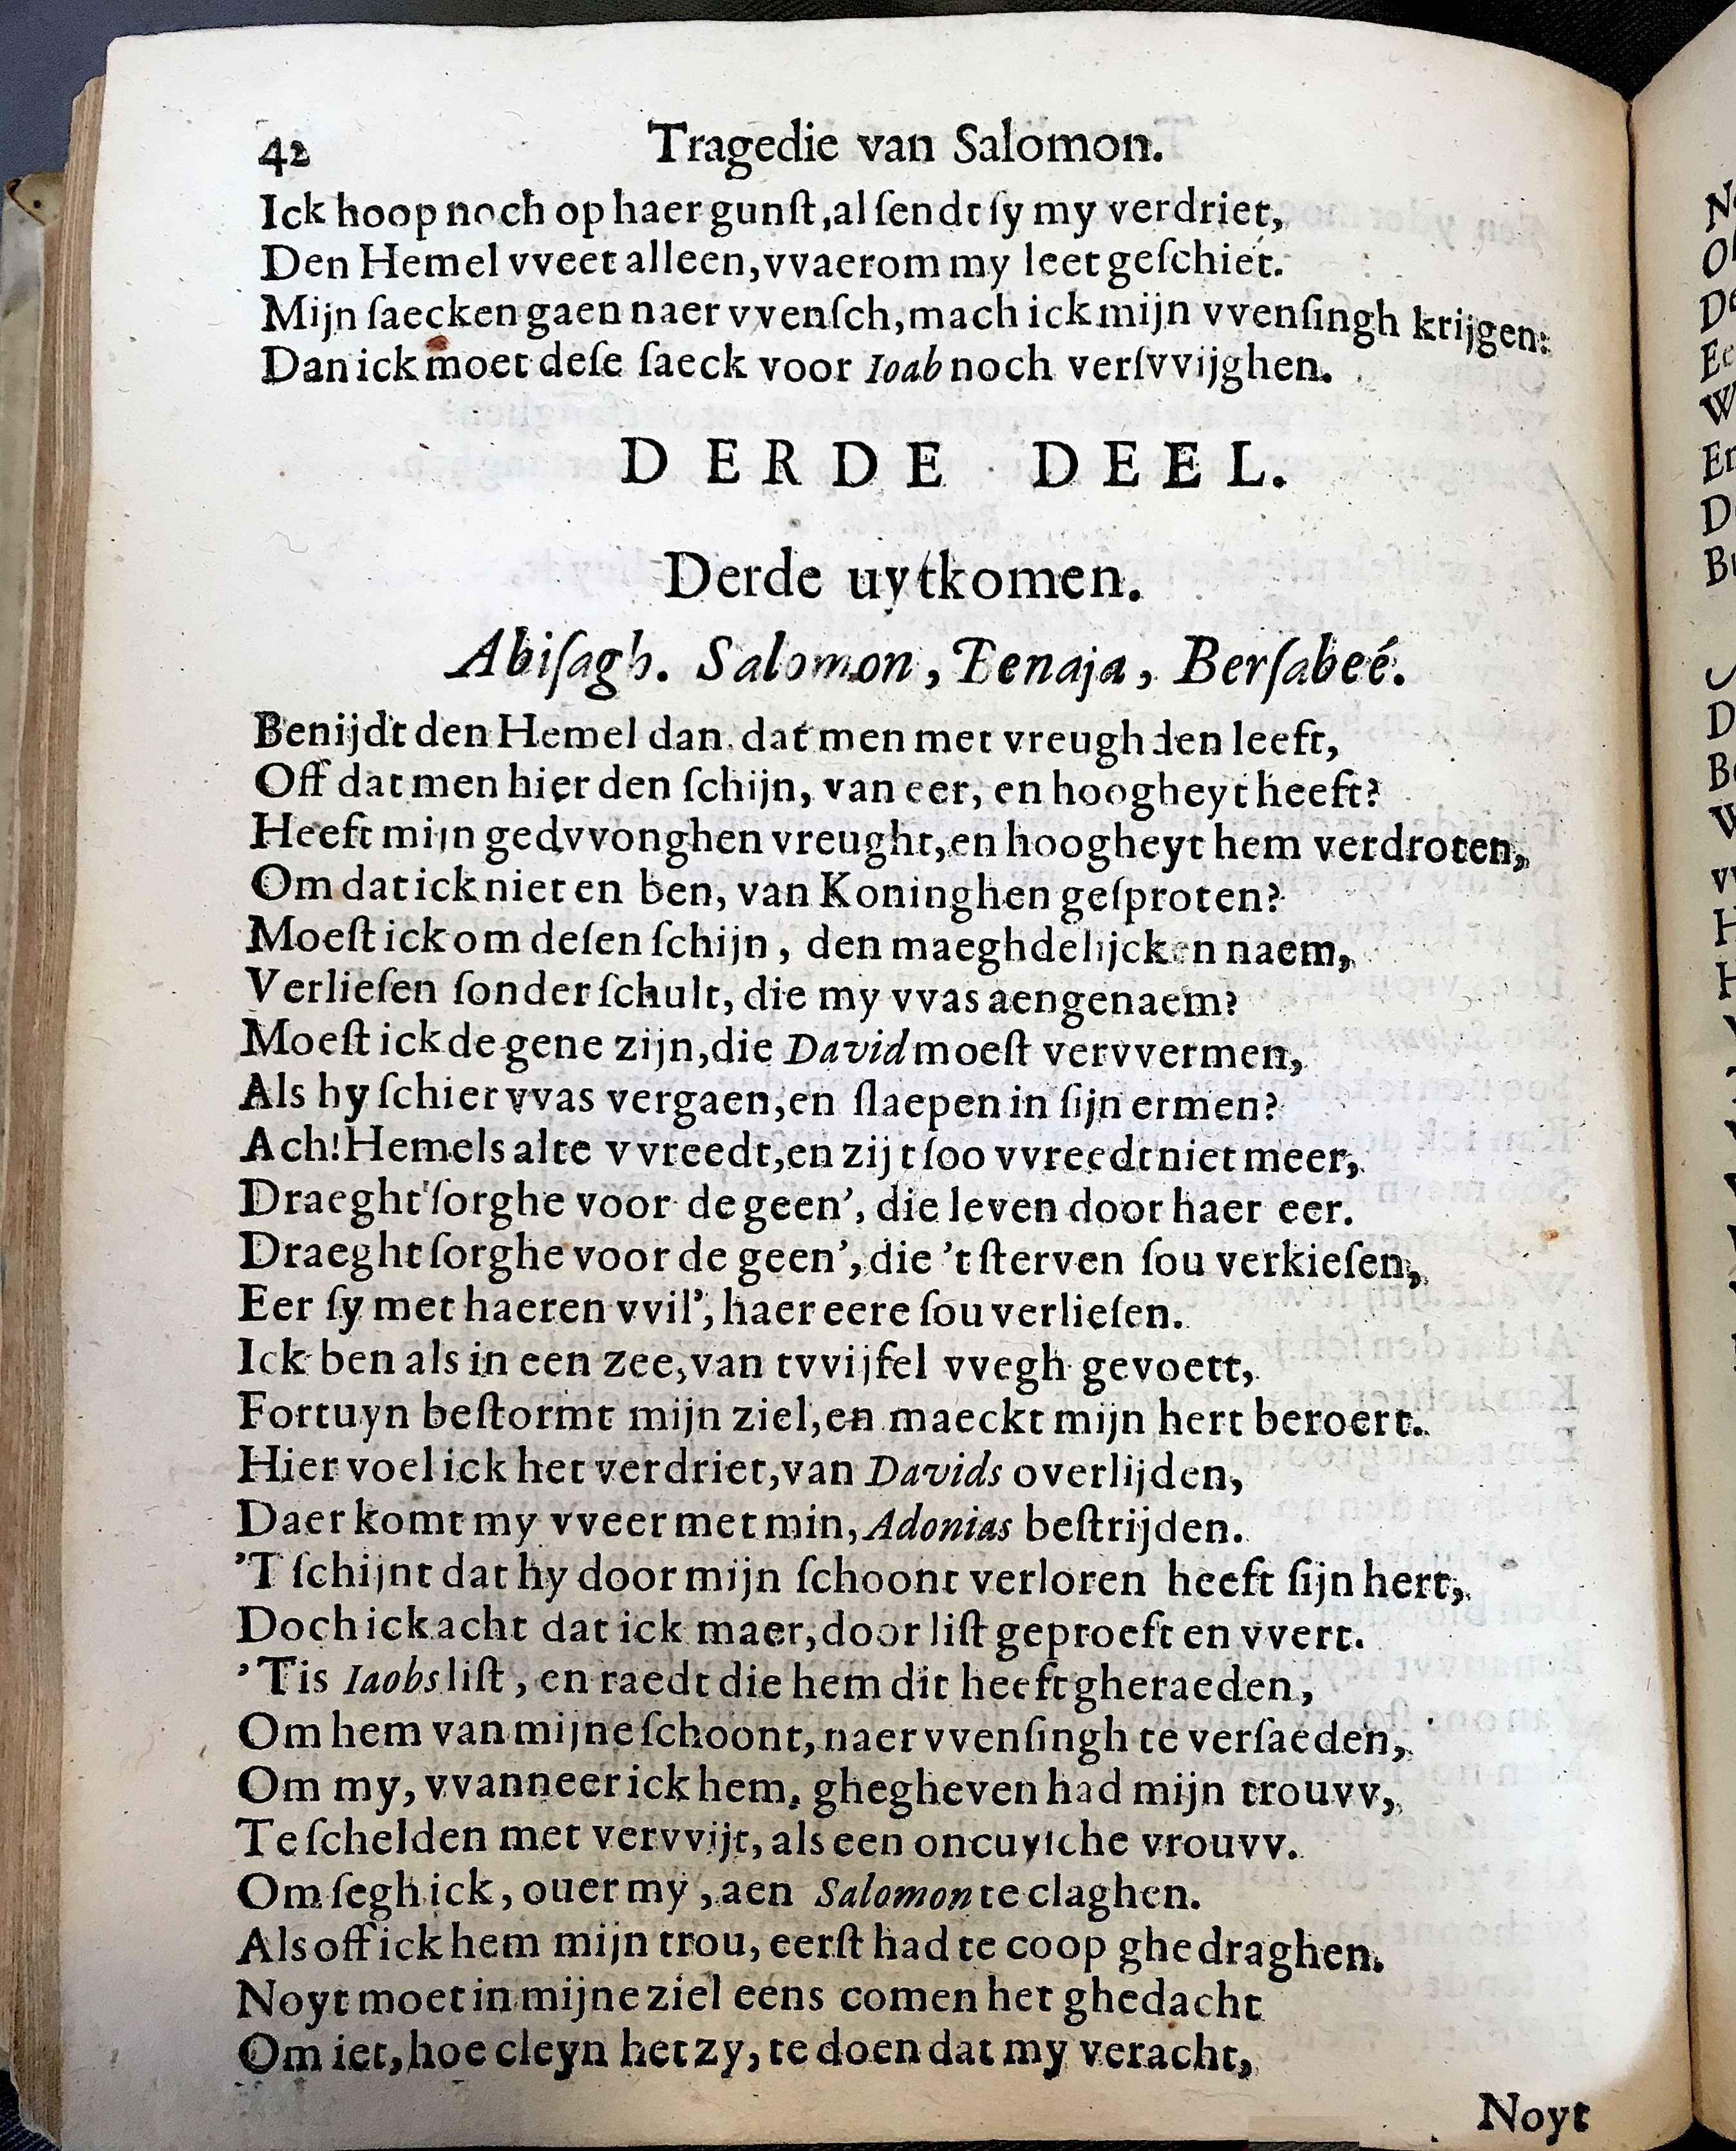 42 Tragedie van Salomon.
Ick hoop noch op haer gunſt, al ſendt ſy my verdriet,
Den Hemel vveet alleen, vvaerom my leet geſchiet.
Mijn ſaecken gaen naer vvenſch, mach ick mijn vvenſingh krijgen:
Dan ick moet deſe ſaeck voor Ioab noch verſvvijghen.
DERDE DEEL.
Derde uytkomen.
Abiſagh. Salomon, Benaja, Berſabeé.
Benijdt den Hemel dan. dat men met vreughden leeft,
Off dat men hier den ſchijn, van eer, en hoogheyt heeft?
Heeft mijn gedvvonghen vreught, en hoogheyt hem verdroten,
Om dat ick niet en ben, van Koninghen geſproten?
Moeſt ick om deſen ſchijn, den maeghdelijcken naem,
Verlieſen ſonder ſchult, die my vvas aengenaem?
Moeſt ick de gene zijn, die David moeſt vervvermen,
Als hy ſchier vvas vergaen, en ſlaepen in ſijn ermen?
Ach! Hemels alte vvreedt, en zijt ſoo vvreedt niet meer,
Draeght ſorghe voor de geen', die leven door haer eer.
Draeght ſorghe voor de geen', die 't ſterven ſou verkieſen,
Eer ſy met haeren vvil', haer eere ſou verlieſen.
Ick ben als in een zee, van tvvijfel vvegh gevoert,
Fortuyn beſtormt mijn ziel, en maeckt mijn hert beroert.
Hier voel ick het verdriet, van Davids overlijden,
Daer komt my vveer met min, Adonias beſtrijden.
'T ſchijnt dat hy door mijn ſchoont verloren heeft ſijn hert,
Doch ick acht dat ick maer, door liſt geproeft en vvert.
'Tis Iaobs liſt, en raedt die hem dit heeft gheraeden,
Om hem van mijne ſchoont, naer vvenſingh te verſaeden,
Om my, vvanneer ick hem, ghegheven had mijn trouvv,
Te ſchelden met vervvijt, als een oncuyſche vrouvv.
Om ſegh ick, ouer my, aen Salomon te claghen.
Als off ick hem mijn trou, eerſt had te coop ghedraghen.
Noyt moet in mijne ziel eens comen het ghedacht
Om iet, hoe cleyn het zy, te doen dat my veracht,
Noyt